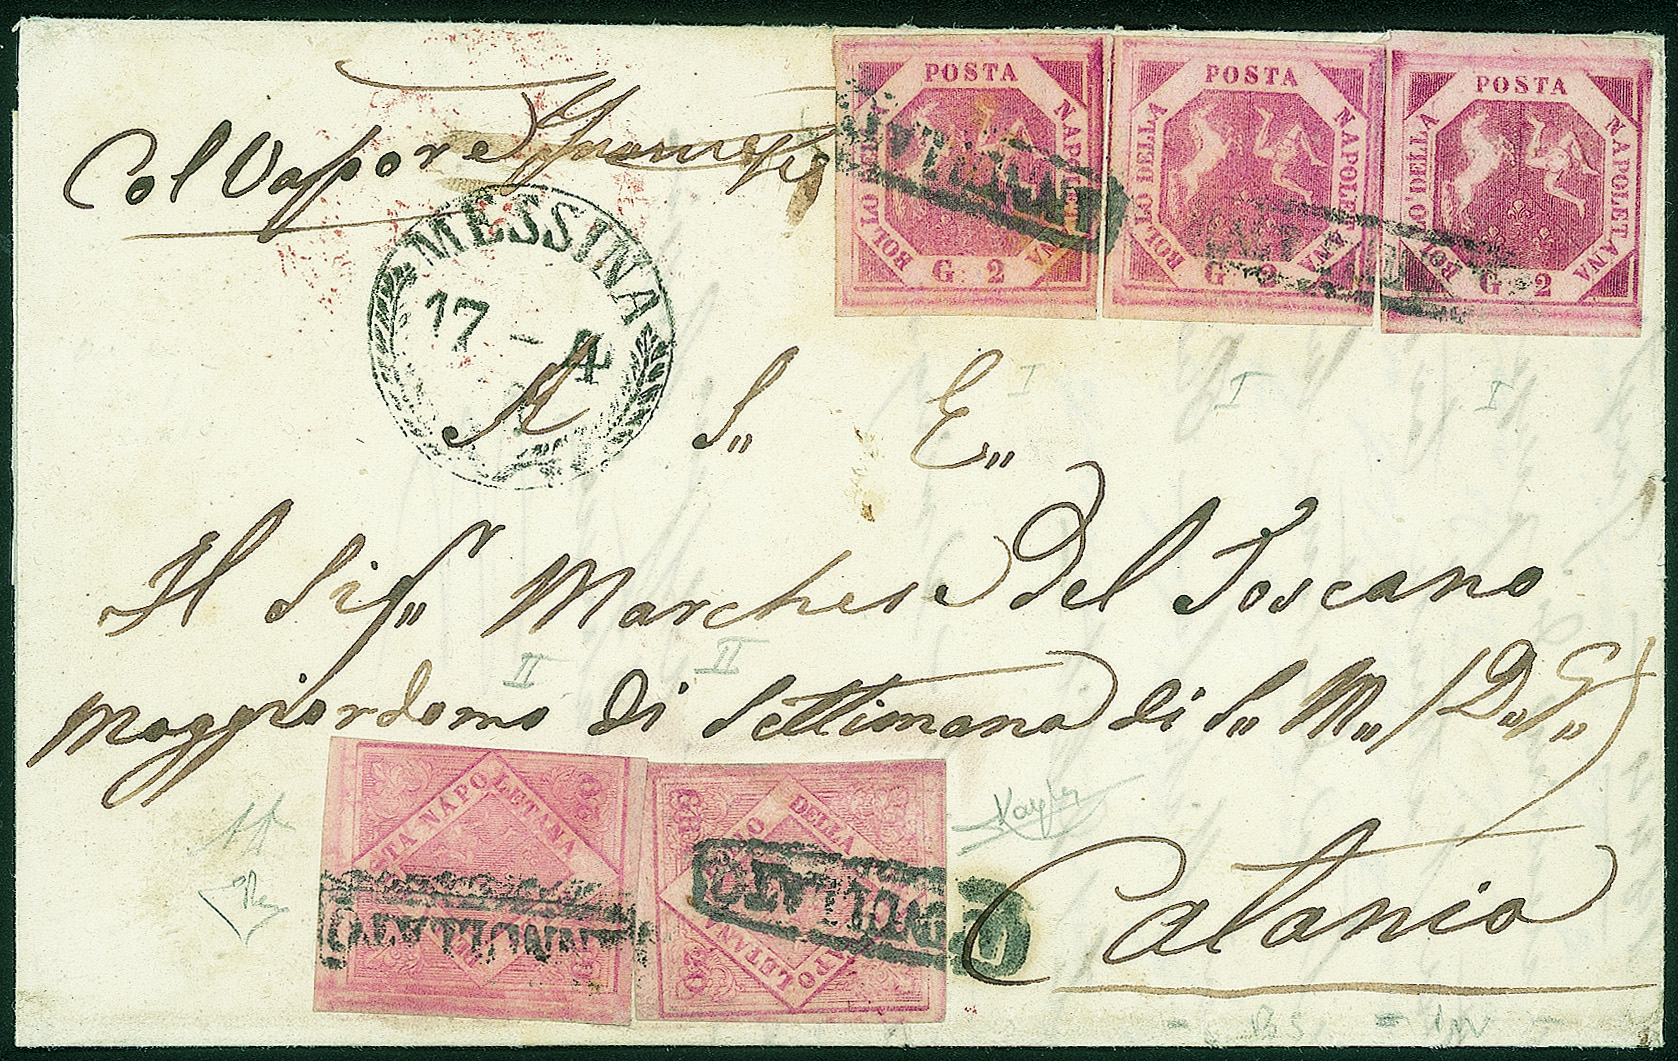 Col Vapore
POSTA NAPOLETANA BOLLO DELLA G. 2
POSTA NAPOLETANA BOLLO DELLA G. 2
POSTA NAPOLETANA BOLLO DELLA G. 2
ANNULLATO
ANNULLATO
MESSINA
17-4
A S,, E,,
I I I
Il Sigr,, Marchese del Toscano
II II
Maggiordomo di Settimana di S,, M,, (D,,G,,)
POSTA NAPOLETANA
DELLA NAPOLETANA
ANNULLATO
ANNULLATO
Catania